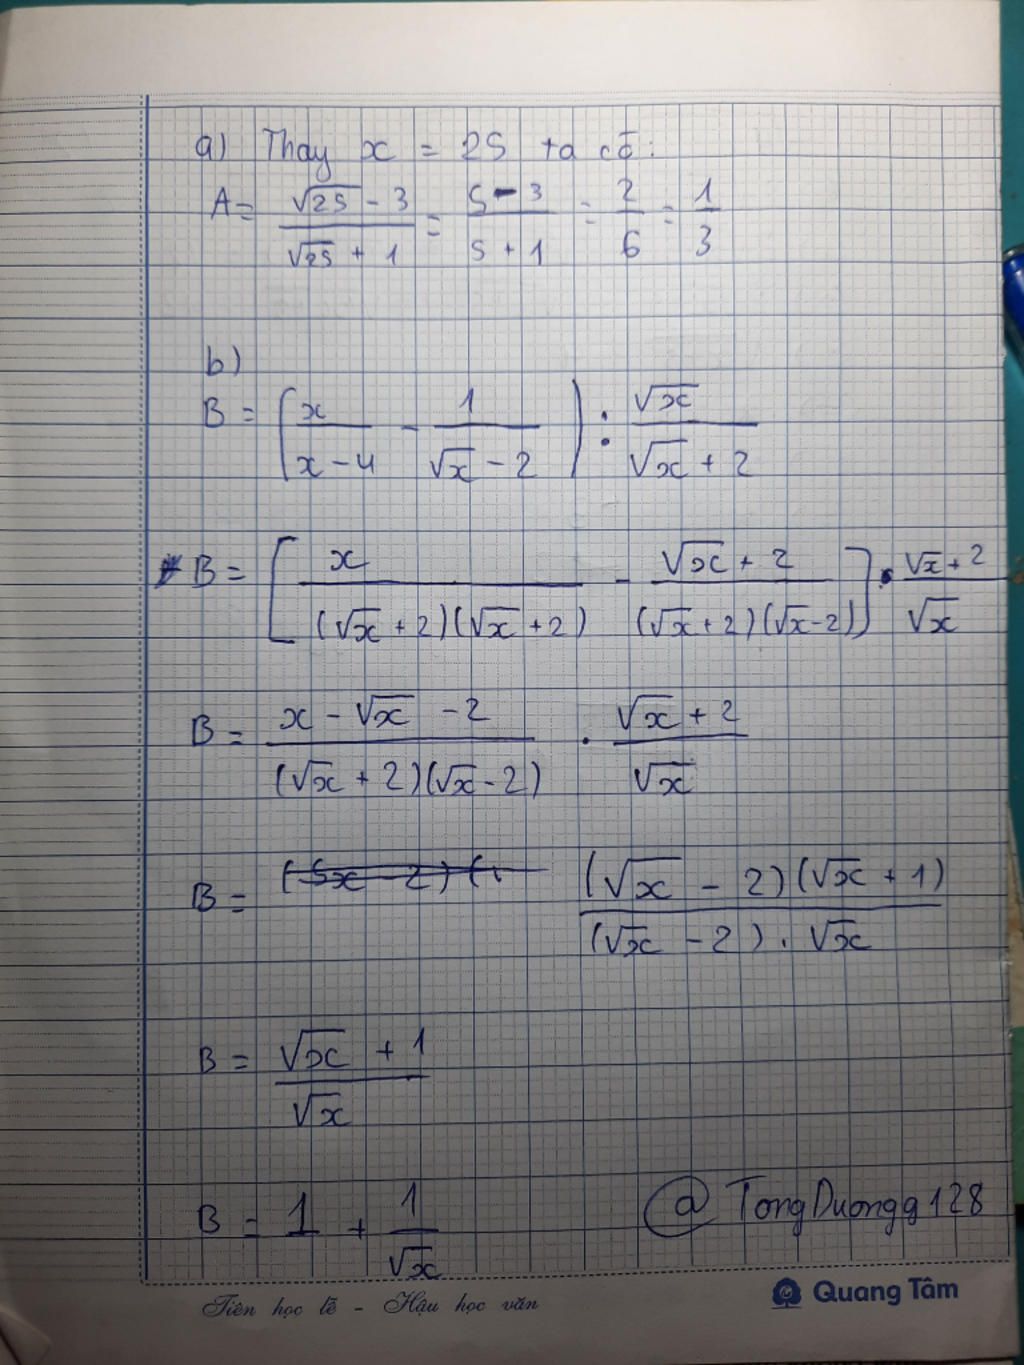 a) Thay x = 25 ta có:
A = (√25 - 3)/(√25 + 1) = (5 - 3)/(5 + 1) = 2/6 = 1/3
b)
B = (x/(x - 4) - 1/(√x - 2)) : √x/(√x + 2)
B = [x/((√x + 2)(√x + 2)) - (√x + 2)/((√x + 2)(√x - 2))] · (√x + 2)/√x
B = (x - √x - 2)/((√x + 2)(√x - 2)) · (√x + 2)/√x
B = ((√x - 2)(√x + 1))/((√x - 2) · √x)
B = (√x + 1)/√x
B = 1 + 1/√x
@TongDuongg128
Tiên học lễ - Hậu học văn
Quang Tâm